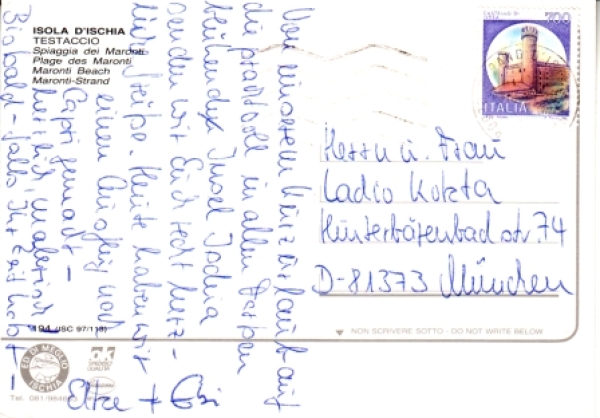 ISOLA D'ISCHIA
TESTACCIO
Spiaggia dei Maronti
Plage des Maronti
Maronti Beach
Maronti-Strand
700
ITALIA
Von unserem Kurzurlaub auf
die prachtvoll in allen Farben
blühenden Insel Ischia
senden wir Euch recht herz-
liche Grüße. Heute haben wir
einen Ausflug nach
Capri gemacht –
herrlich, malerisch!
Bis bald – falls Ihr Zeit habt –
Elke + Edi
Herrn u. Frau
Ladio Kotzta
Hinterbärenbadstr. 74
D-81373 München
194 (ISC 97/116)
NON SCRIVERE SOTTO - DO NOT WRITE BELOW
ED. DI MEGLIO
ISCHIA
OK
Tel. 081/984